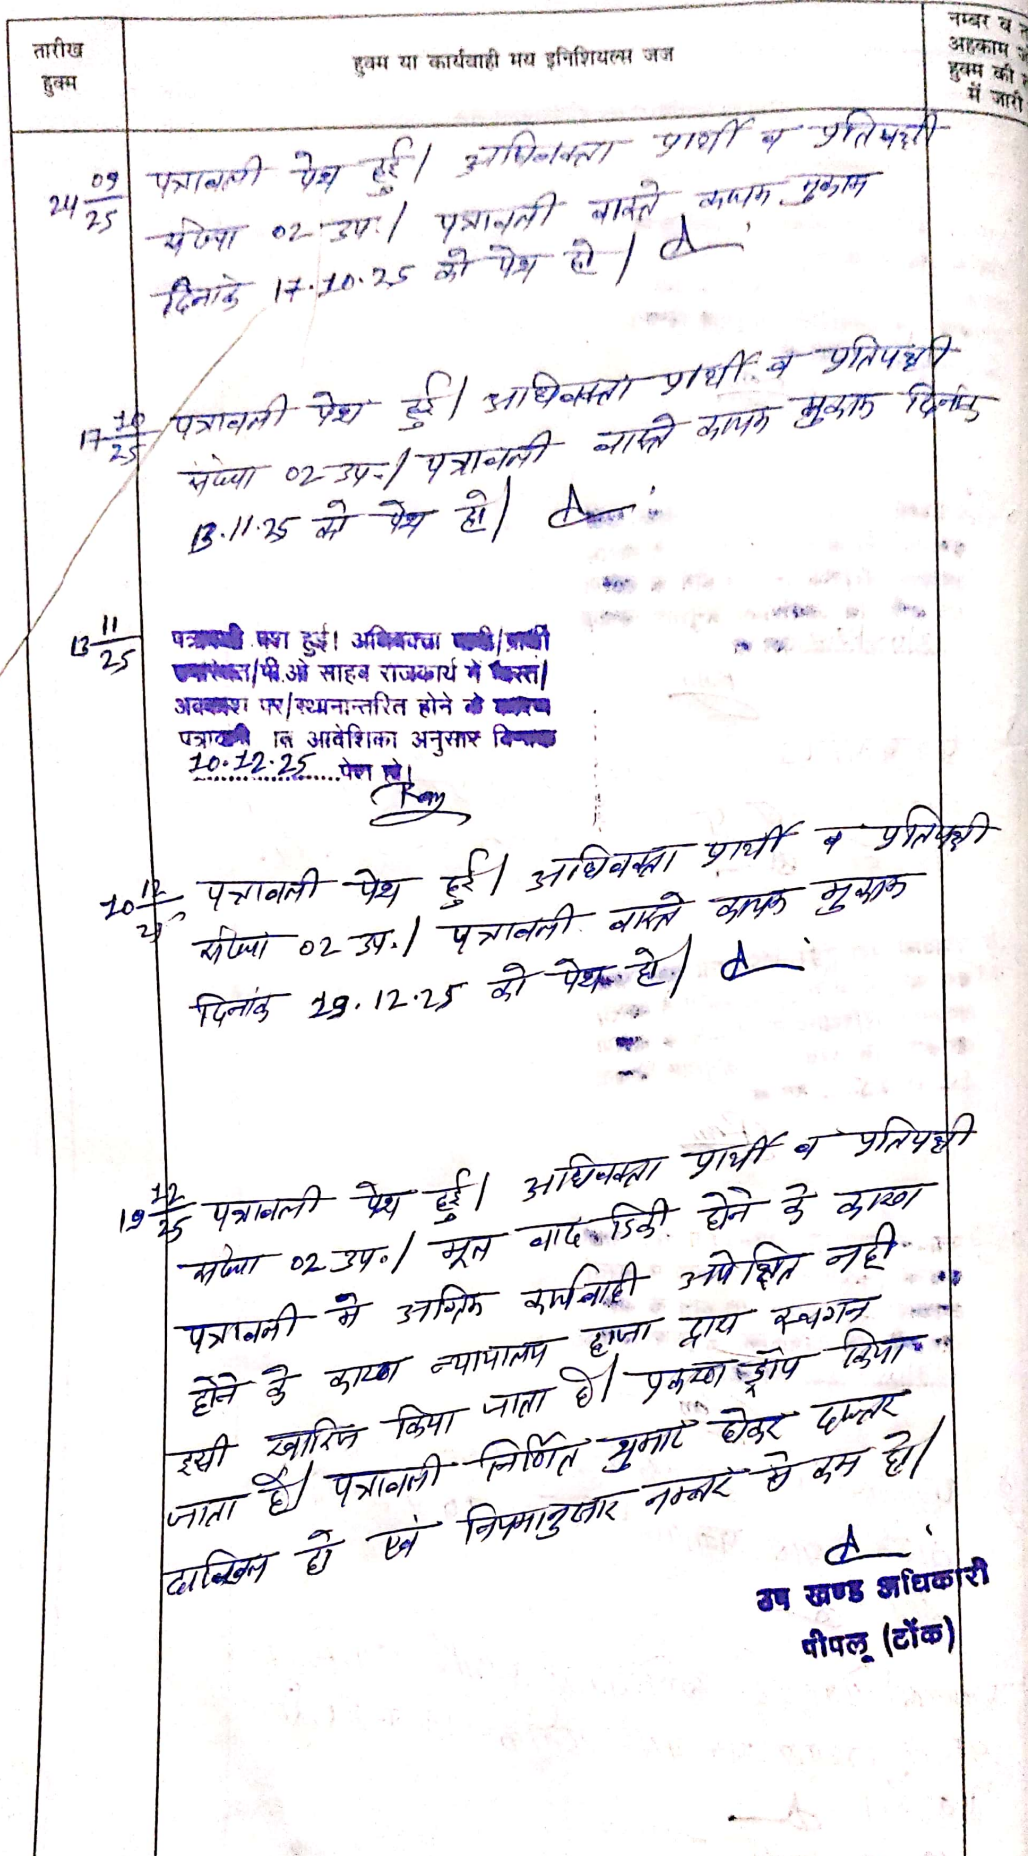 तारीख
हुक्म
हुक्म या कार्यवाही मय इनिशियल्स जज
नम्बर व
अहकाम
हुक्म की
में जारी
24 09/25 पत्रावली पेश हुई। अधिवक्ता प्रार्थी व प्रतिपक्षी
संख्या 02 उप.। पत्रावली वास्ते कायम मुकाम
दिनांक 17.10.25 को पेश हो।
17 10/25 पत्रावली पेश हुई। अधिवक्ता प्रार्थी व प्रतिपक्षी
संख्या 02 उप.। पत्रावली वास्ते कायम मुकाम दिनांक
13.11.25 को पेश हो।
13 11/25 पत्रावली पेश हुई। अधिवक्ता वादी/प्रार्थी
उपस्थित/पी.ओ साहब राजकार्य में व्यस्त/
अवकाश पर/स्थानान्तरित होने के कारण
पत्रावली आदेशिका अनुसार दिनांक
10.12.25 पेश हो।
10 12/25 पत्रावली पेश हुई। अधिवक्ता प्रार्थी व प्रतिपक्षी
संख्या 02 उप.। पत्रावली वास्ते कायम मुकाम
दिनांक 19.12.25 को पेश हो।
19 12/25 पत्रावली पेश हुई। अधिवक्ता प्रार्थी व प्रतिपक्षी
संख्या 02 उप.। मूल वाद डिक्री होने के कारण
पत्रावली में अग्रिम कार्यवाही अपेक्षित नही
होने के कारण न्यायालय हाजा द्वारा स्थगन
इसी खारिज किया जाता है। प्रकरण ड्रॉप किया
जाता है। पत्रावली निर्णित शुमार होकर दफ्तर
दाखिल हो एवं नियमानुसार नम्बर से कम हो।
उप खण्ड अधिकारी
पीपलू (टोंक)